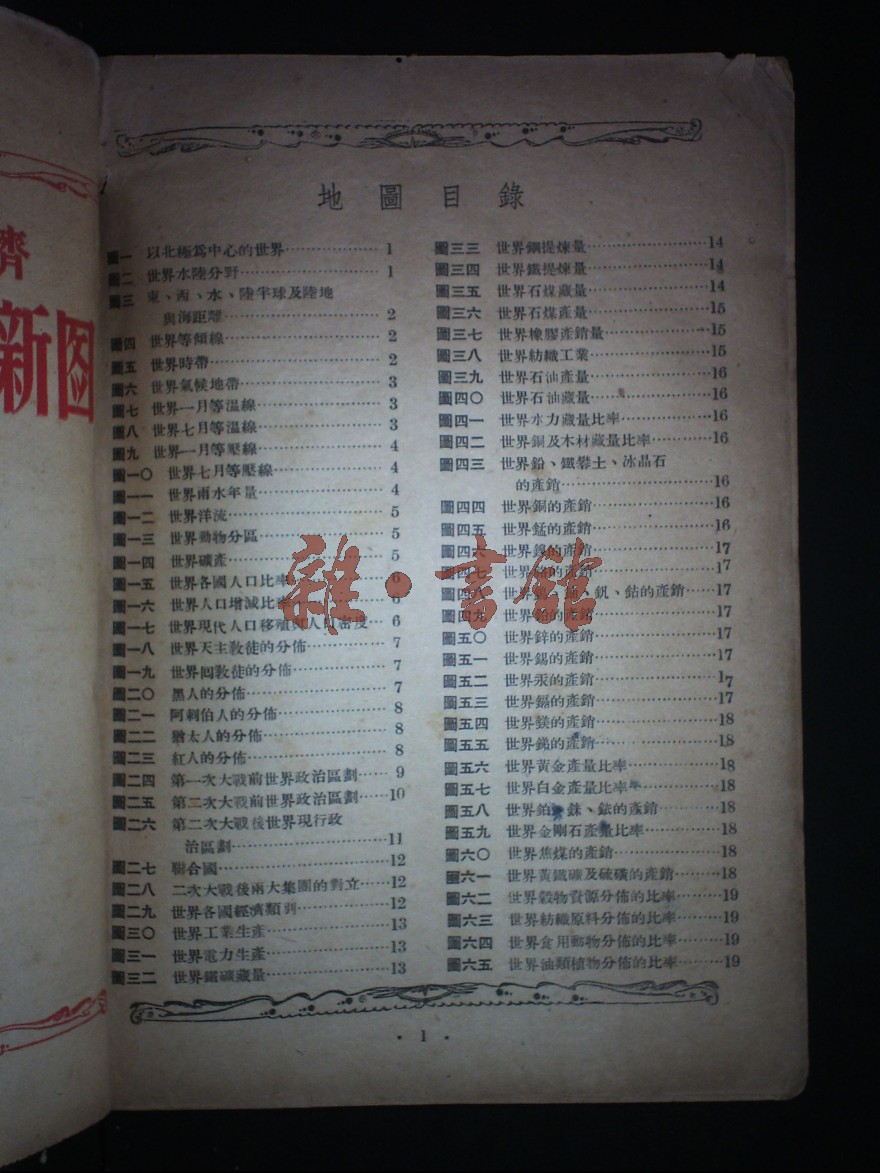 濟
新图
地圖目錄
圖一 以北極爲中心的世界 1
圖二 世界水陸分野 1
圖三 東、西、水、陸半球及陸地
與海距離 2
圖四 世界等傾線 2
圖五 世界時帶 2
圖六 世界氣候地帶 3
圖七 世界一月等溫線 3
圖八 世界七月等溫線 3
圖九 世界一月等壓線 4
圖一〇 世界七月等壓線 4
圖一一 世界雨水年量 4
圖一二 世界洋流 5
圖一三 世界動物分區 5
圖一四 世界礦產 5
圖一五 世界各國人口比率 6
圖一六 世界人口增減比率 6
圖一七 世界現代人口移殖與人口密度 6
圖一八 世界天主敎徒的分佈 7
圖一九 世界囘敎徒的分佈 7
圖二〇 黑人的分佈 7
圖二一 阿剌伯人的分佈 8
圖二二 猶太人的分佈 8
圖二三 紅人的分佈 8
圖二四 第一次大戰前世界政治區劃 9
圖二五 第二次大戰前世界政治區劃 10
圖二六 第二次大戰後世界現行政
治區劃 11
圖二七 聯合國 12
圖二八 二次大戰後兩大集團的對立 12
圖二九 世界各國經濟類別 12
圖三〇 世界工業生產 13
圖三一 世界電力生產 13
圖三二 世界鐵礦藏量 13
圖三三 世界鋼提煉量 14
圖三四 世界鐵提煉量 14
圖三五 世界石煤藏量 14
圖三六 世界石煤產量 15
圖三七 世界橡膠產銷量 15
圖三八 世界紡織工業 15
圖三九 世界石油產量 16
圖四〇 世界石油藏量 16
圖四一 世界水力藏量比率 16
圖四二 世界銅及木材藏量比率 16
圖四三 世界鉛、鐵礬土、冰晶石
的產銷 16
圖四四 世界銅的產銷 16
圖四五 世界錳的產銷 16
圖四六 世界的產銷 17
圖四七 世界的產銷 17
圖四八 世界、釩、鈷的產銷 17
圖四九 世界鉛的產銷 17
圖五〇 世界鋅的產銷 17
圖五一 世界錫的產銷 17
圖五二 世界汞的產銷 17
圖五三 世界鎘的產銷 17
圖五四 世界鎂的產銷 18
圖五五 世界銻的產銷 18
圖五六 世界黃金產量比率 18
圖五七 世界白金產量比率 18
圖五八 世界鉑、銖、銥的產銷 18
圖五九 世界金剛石產量比率 18
圖六〇 世界焦煤的產銷 18
圖六一 世界黃鐵礦及硫磺的產銷 18
圖六二 世界穀物資源分佈的比率 19
圖六三 世界紡織原料分佈的比率 19
圖六四 世界食用動物分佈的比率 19
圖六五 世界油類植物分佈的比率 19
·1·
雜·書館